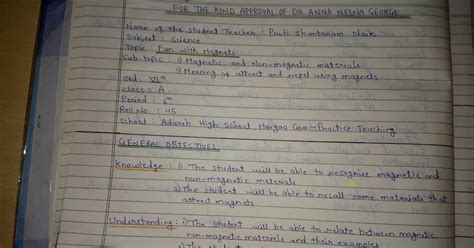 FOR THE KIND APPROVAL OF DR. ANNA NEENA GEORGE
Name of the student Teacher : Pruti Shantaram Naik
Subject : Science
Topic : Fun with Magnets
Sub-topic : i) Magnetic and Non-magnetic materials
ii) Meaning of attract and repel using magnets
Std : VIth
Class : A
Period : 6th
Roll No : 45
School : Adarsh High School, Margao Goa - Practice Teaching
GENERAL OBJECTIVES
Knowledge : i) The student will be able to recognise magnetic and
non-magnetic materials
ii) The student will be able to recall some materials that
attract magnets
Understanding : i) The student will be able to relate between magnetic
non-magnetic materials and their examples